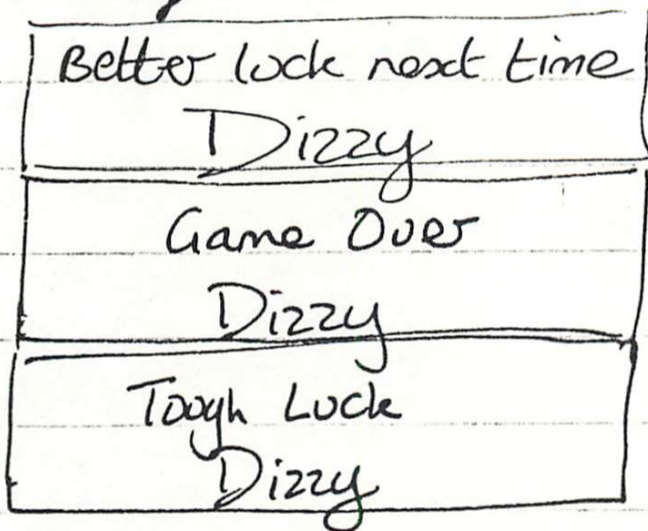 Better luck next time
Dizzy
Game Over
Dizzy
Tough Luck
Dizzy